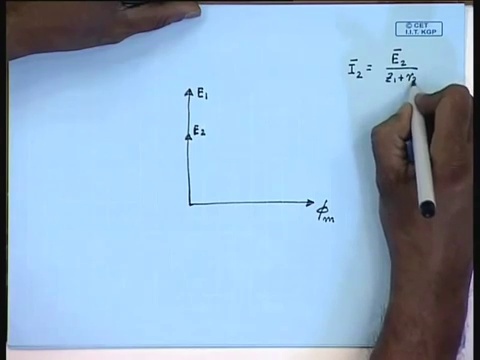 © CET
I.I.T. KGP
Ī₂ = Ē₂ / z₁ + r₂
E₁
E₂
ϕm